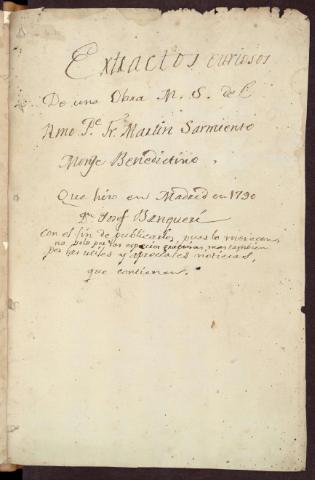 Extractos curiosos
De una Obra M. S. del
Rmo Pe. Fr. Martin Sarmiento
Monje Benedictino.
Que hizo en Madrid en 1790
Dn. Josef Banqueri
con el fin de publicarlos, pues lo merecen,
no solo por las especies mas tambien
por las utiles y apreciables noticias,
que contienen.